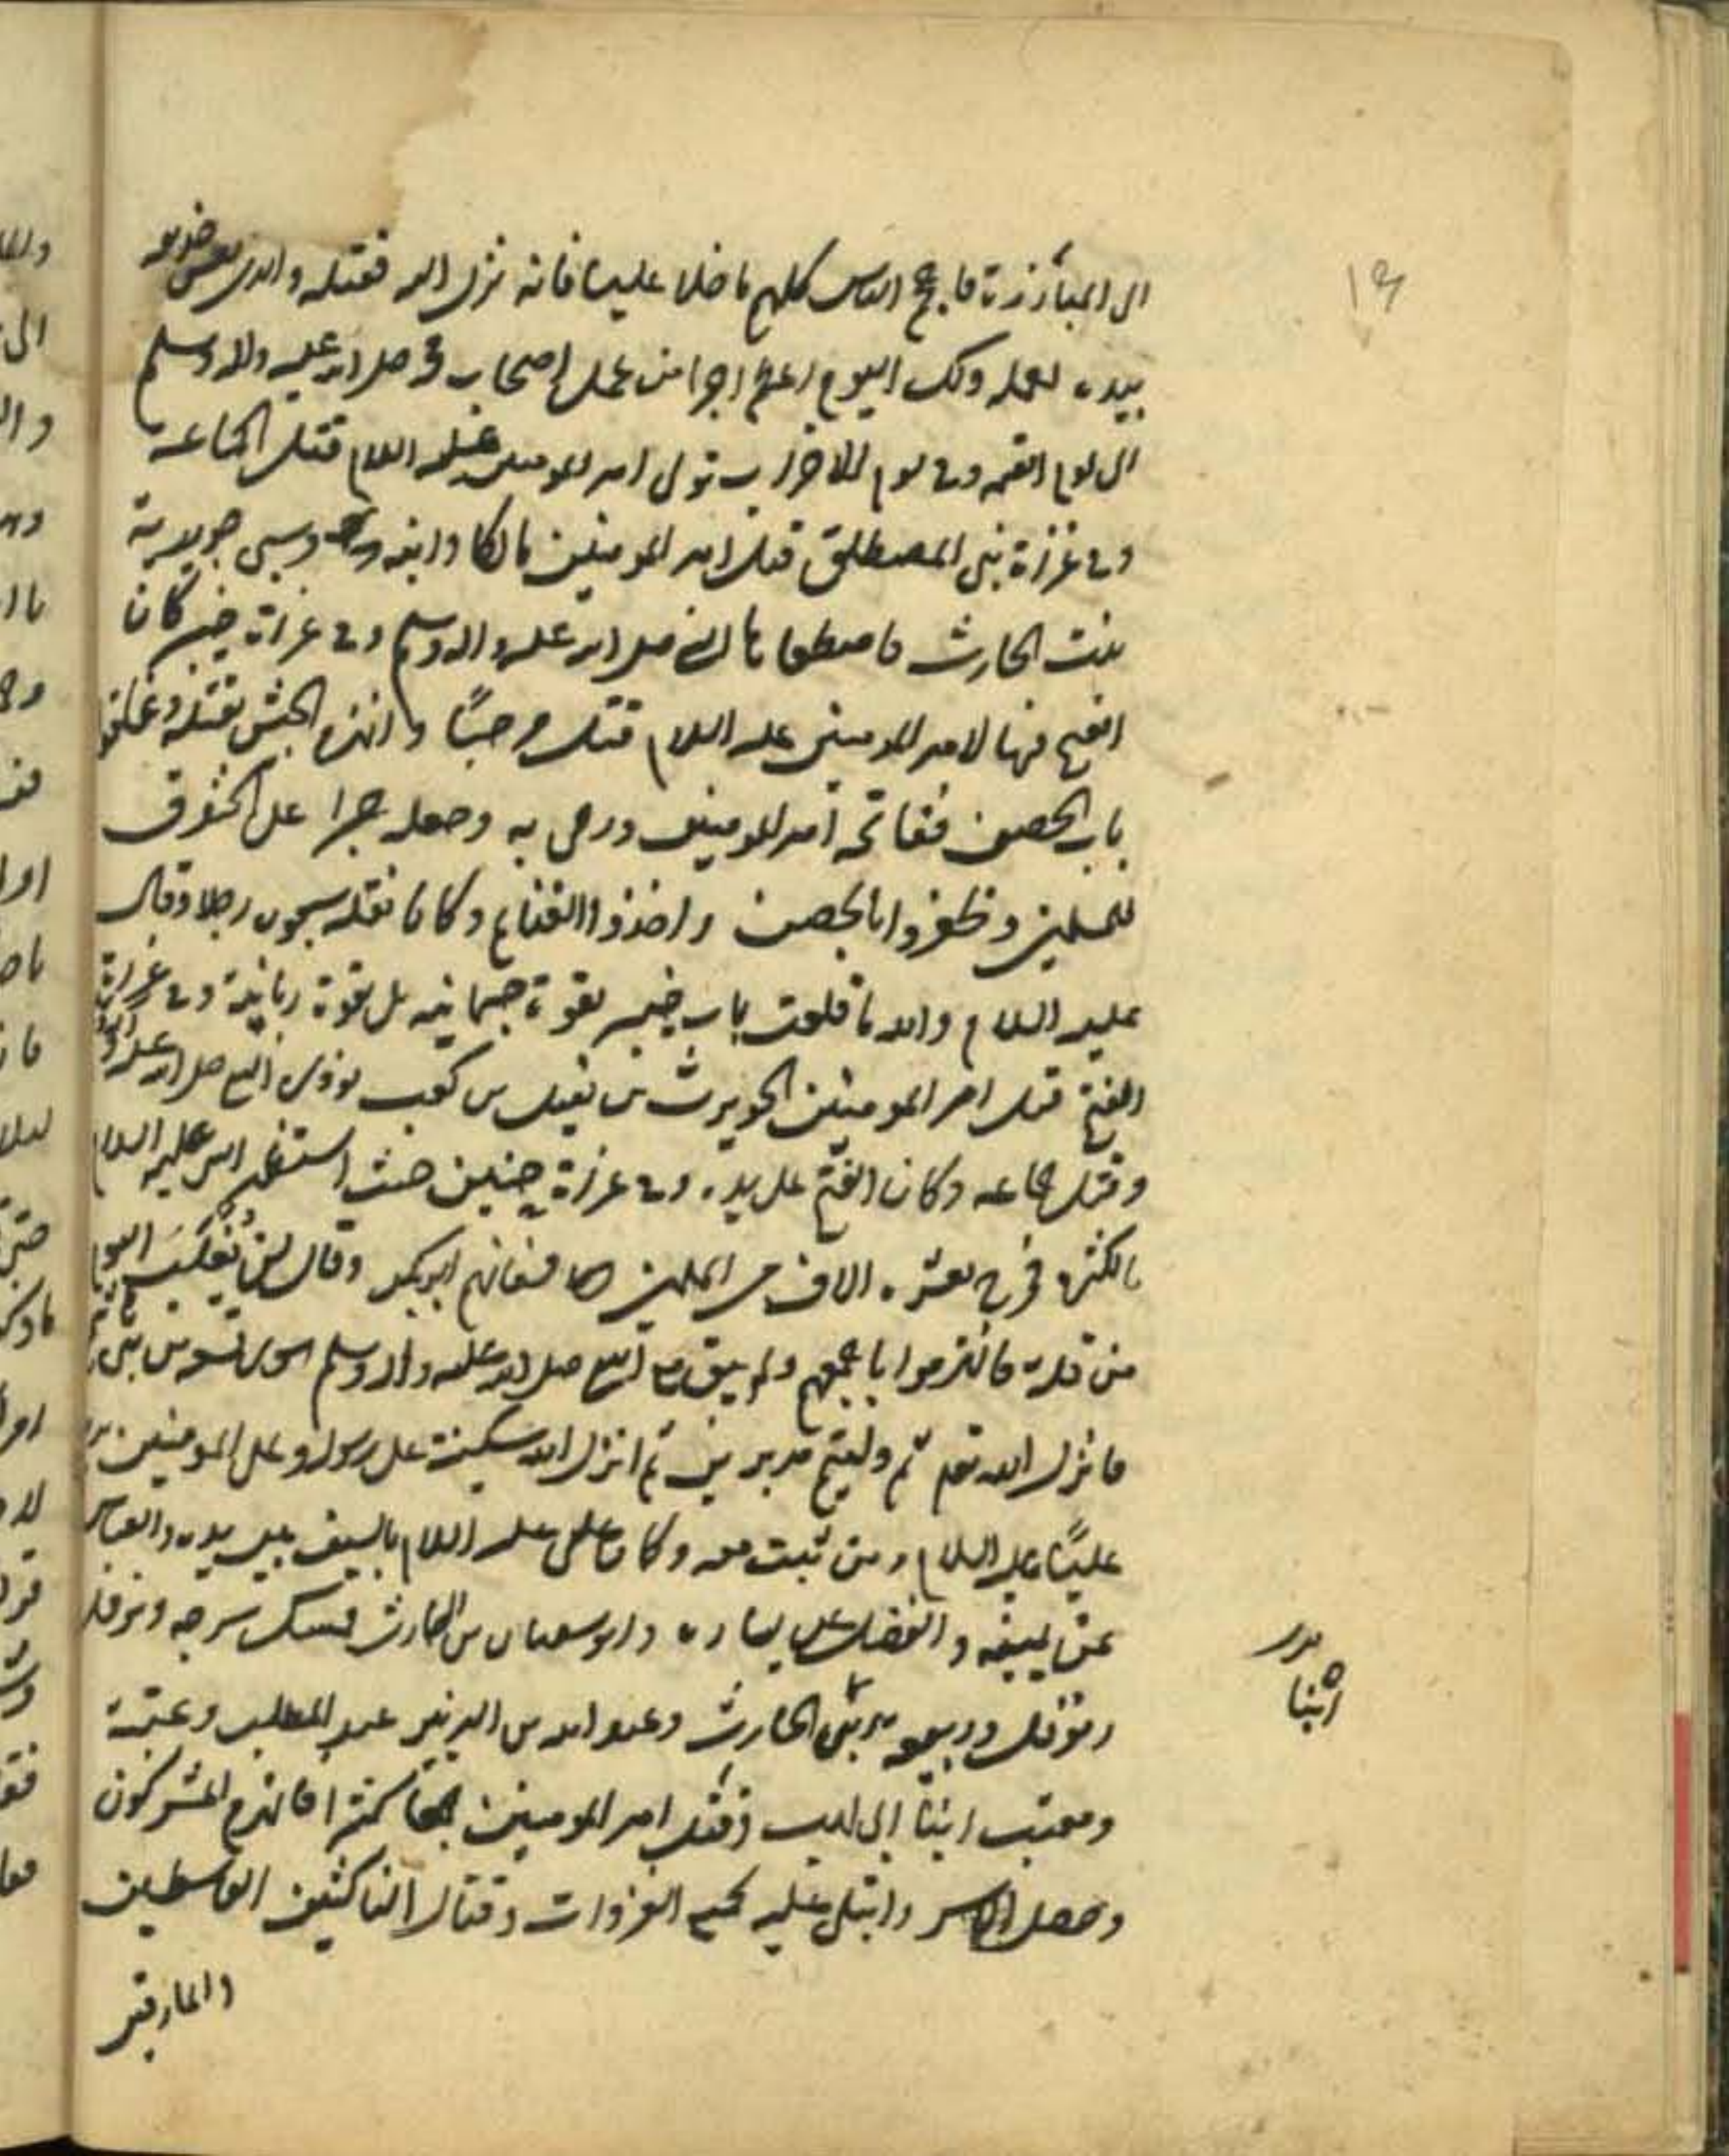 الى المبارزة فاحجم الناس كلهم ما خلا عليا فانه نزل اليه فقتله والذى نفس حذيفة
بيده لعمله ذلك اليوم اعظم اجرا من عمل اصحاب محمد صلى الله عليه واله وسلم
الى يوم القيمه وفى يوم الاحزاب تولى امير المومنين عليه السلام قتل الجماعة
وفى غزاة بنى المصطلق قتل امير المومنين مالكا وابنه وسبى جويرية
بنت الحارث فاصطفاها النبى صلى الله عليه واله وسلم وفى غزاة خيبر كان
الفتح فيها لامير المومنين عليه السلام قتل مرحبًا وانهزم الجيش بقتله وغلقوا
باب الحصن ففاتحه امير المومنين ورمى به وجعله جسرا على الخندق
للمسلمين وظفروا بالحصن واخذوا الغنايم وكان يقله سبعون رجلا وقال
عليه السلام والله ما قلعت باب خيبر بقوة جسمانيه بل بقوة ربانية وفى غزاة
الفتح قتل امير المومنين الحويرث بن نقيل بن كعب يوذى النبى صلى الله عليه واله
وقتل جماعه وكان الفتح على يده وفى غزاة حنين حيث استظهر النبى عليه السلام
بالكثرة فخرج بعشرة الاف من المسلمين فعانهم ابو بكر وقال لن نُغلَبَ اليوم
من قلة فانهزموا باجمعهم ولم يبق مع النبى صلى الله عليه واله وسلم سوى تسعة من بنى هاشم
فانزل الله تعالى ثم وليتم مدبرين ثم انزل الله سكينته على رسوله وعلى المومنين يريد
عليًا عليه السلام ومن ثبت معه وكان على عليه السلام بالسيف بين يديه والعباس
عن يمينه والفضل على يساره وابو سفيان بن الحارث يمسك سرجه ونوفل
ونوفل وربيعه بنى الحارث وعبد الله بن الزبير عبد المطلب وعتبة
ومعتب ابنا ابى لهب وقتل امير المومنين جمعا كثيرا فانهزم المشركون
وحصل الاسر وابتلى عليه بجميع الغزوات وقتال الناكثين القاسطين
والمارقين
ابنا